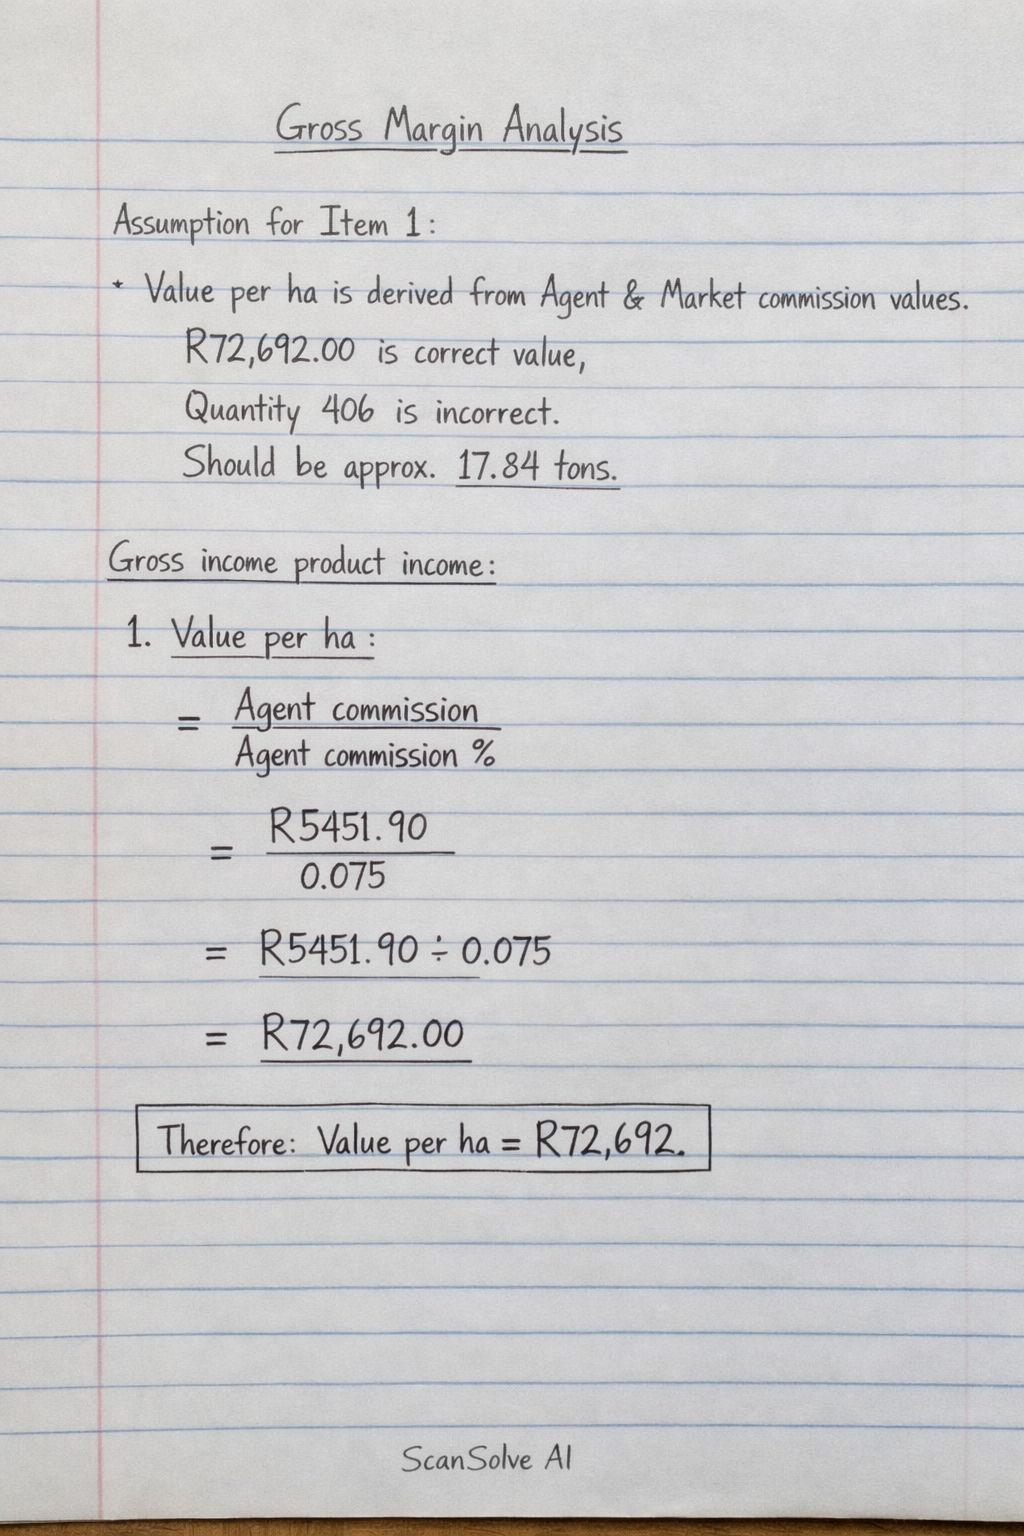 Gross Margin Analysis
Assumption for Item 1:
* Value per ha is derived from Agent & Market commission values.
R72,692.00 is correct value,
Quantity 406 is incorrect.
Should be approx. 17.84 tons.
Gross income product income:
1. Value per ha:
= Agent commission
Agent commission %
= R5451.90
0.075
= R5451.90 ÷ 0.075
= R72,692.00
Therefore: Value per ha = R72,692.
ScanSolve AI